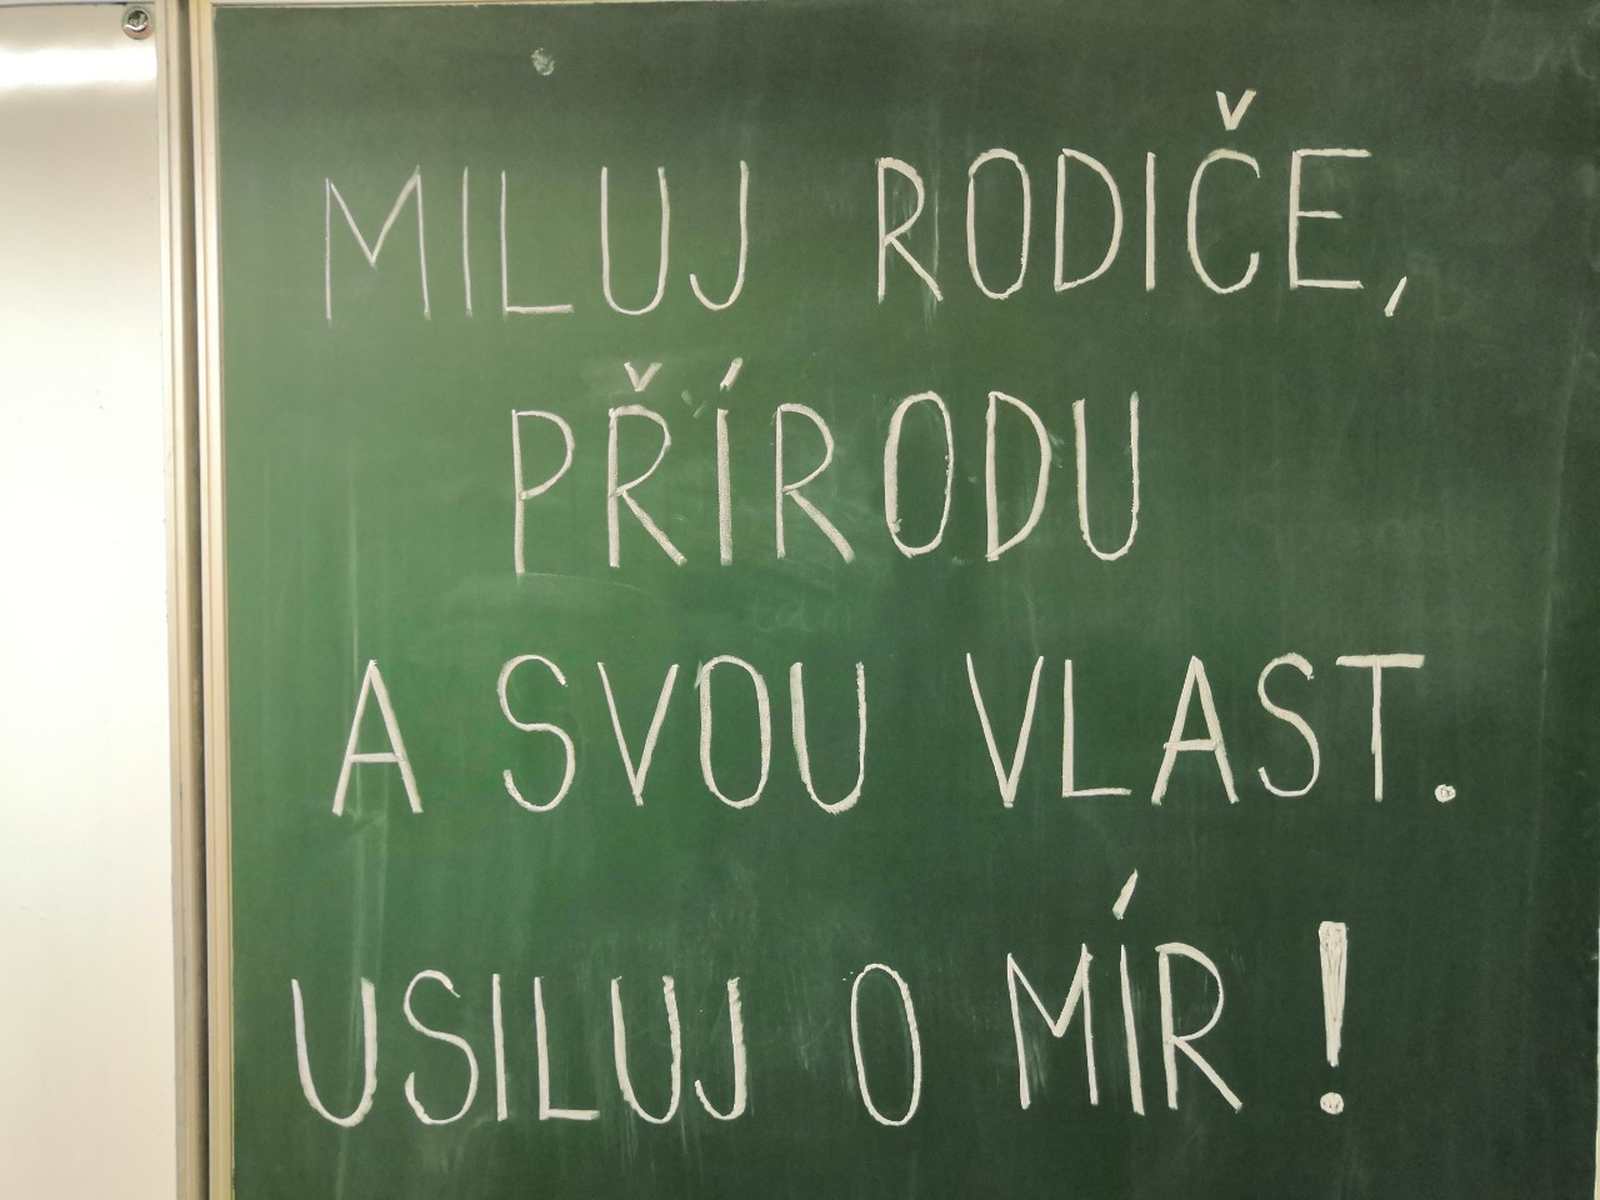 MILUJ RODIČE,
PŘÍRODU
A SVOU VLAST.
USILUJ O MÍR!